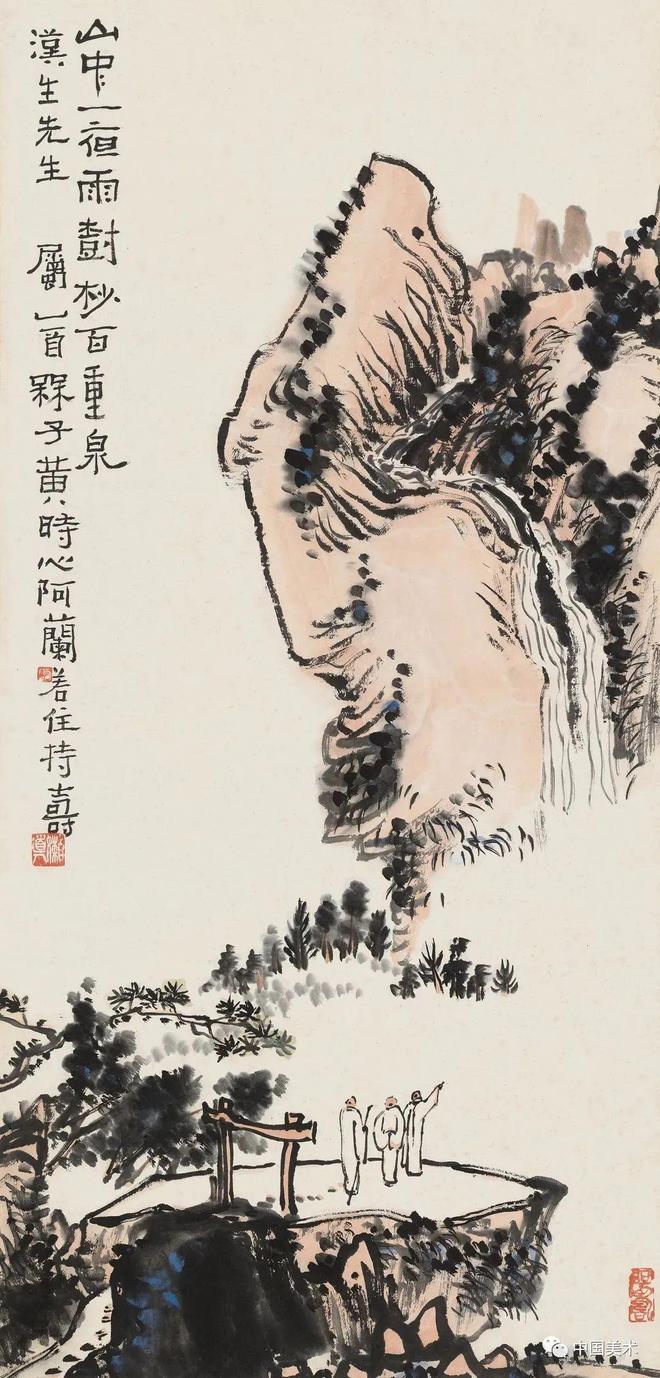 山中一夜雨樹杪百重泉
漢生先生 屬 乙酉槑子黃時心阿蘭若住持壽
中国美术